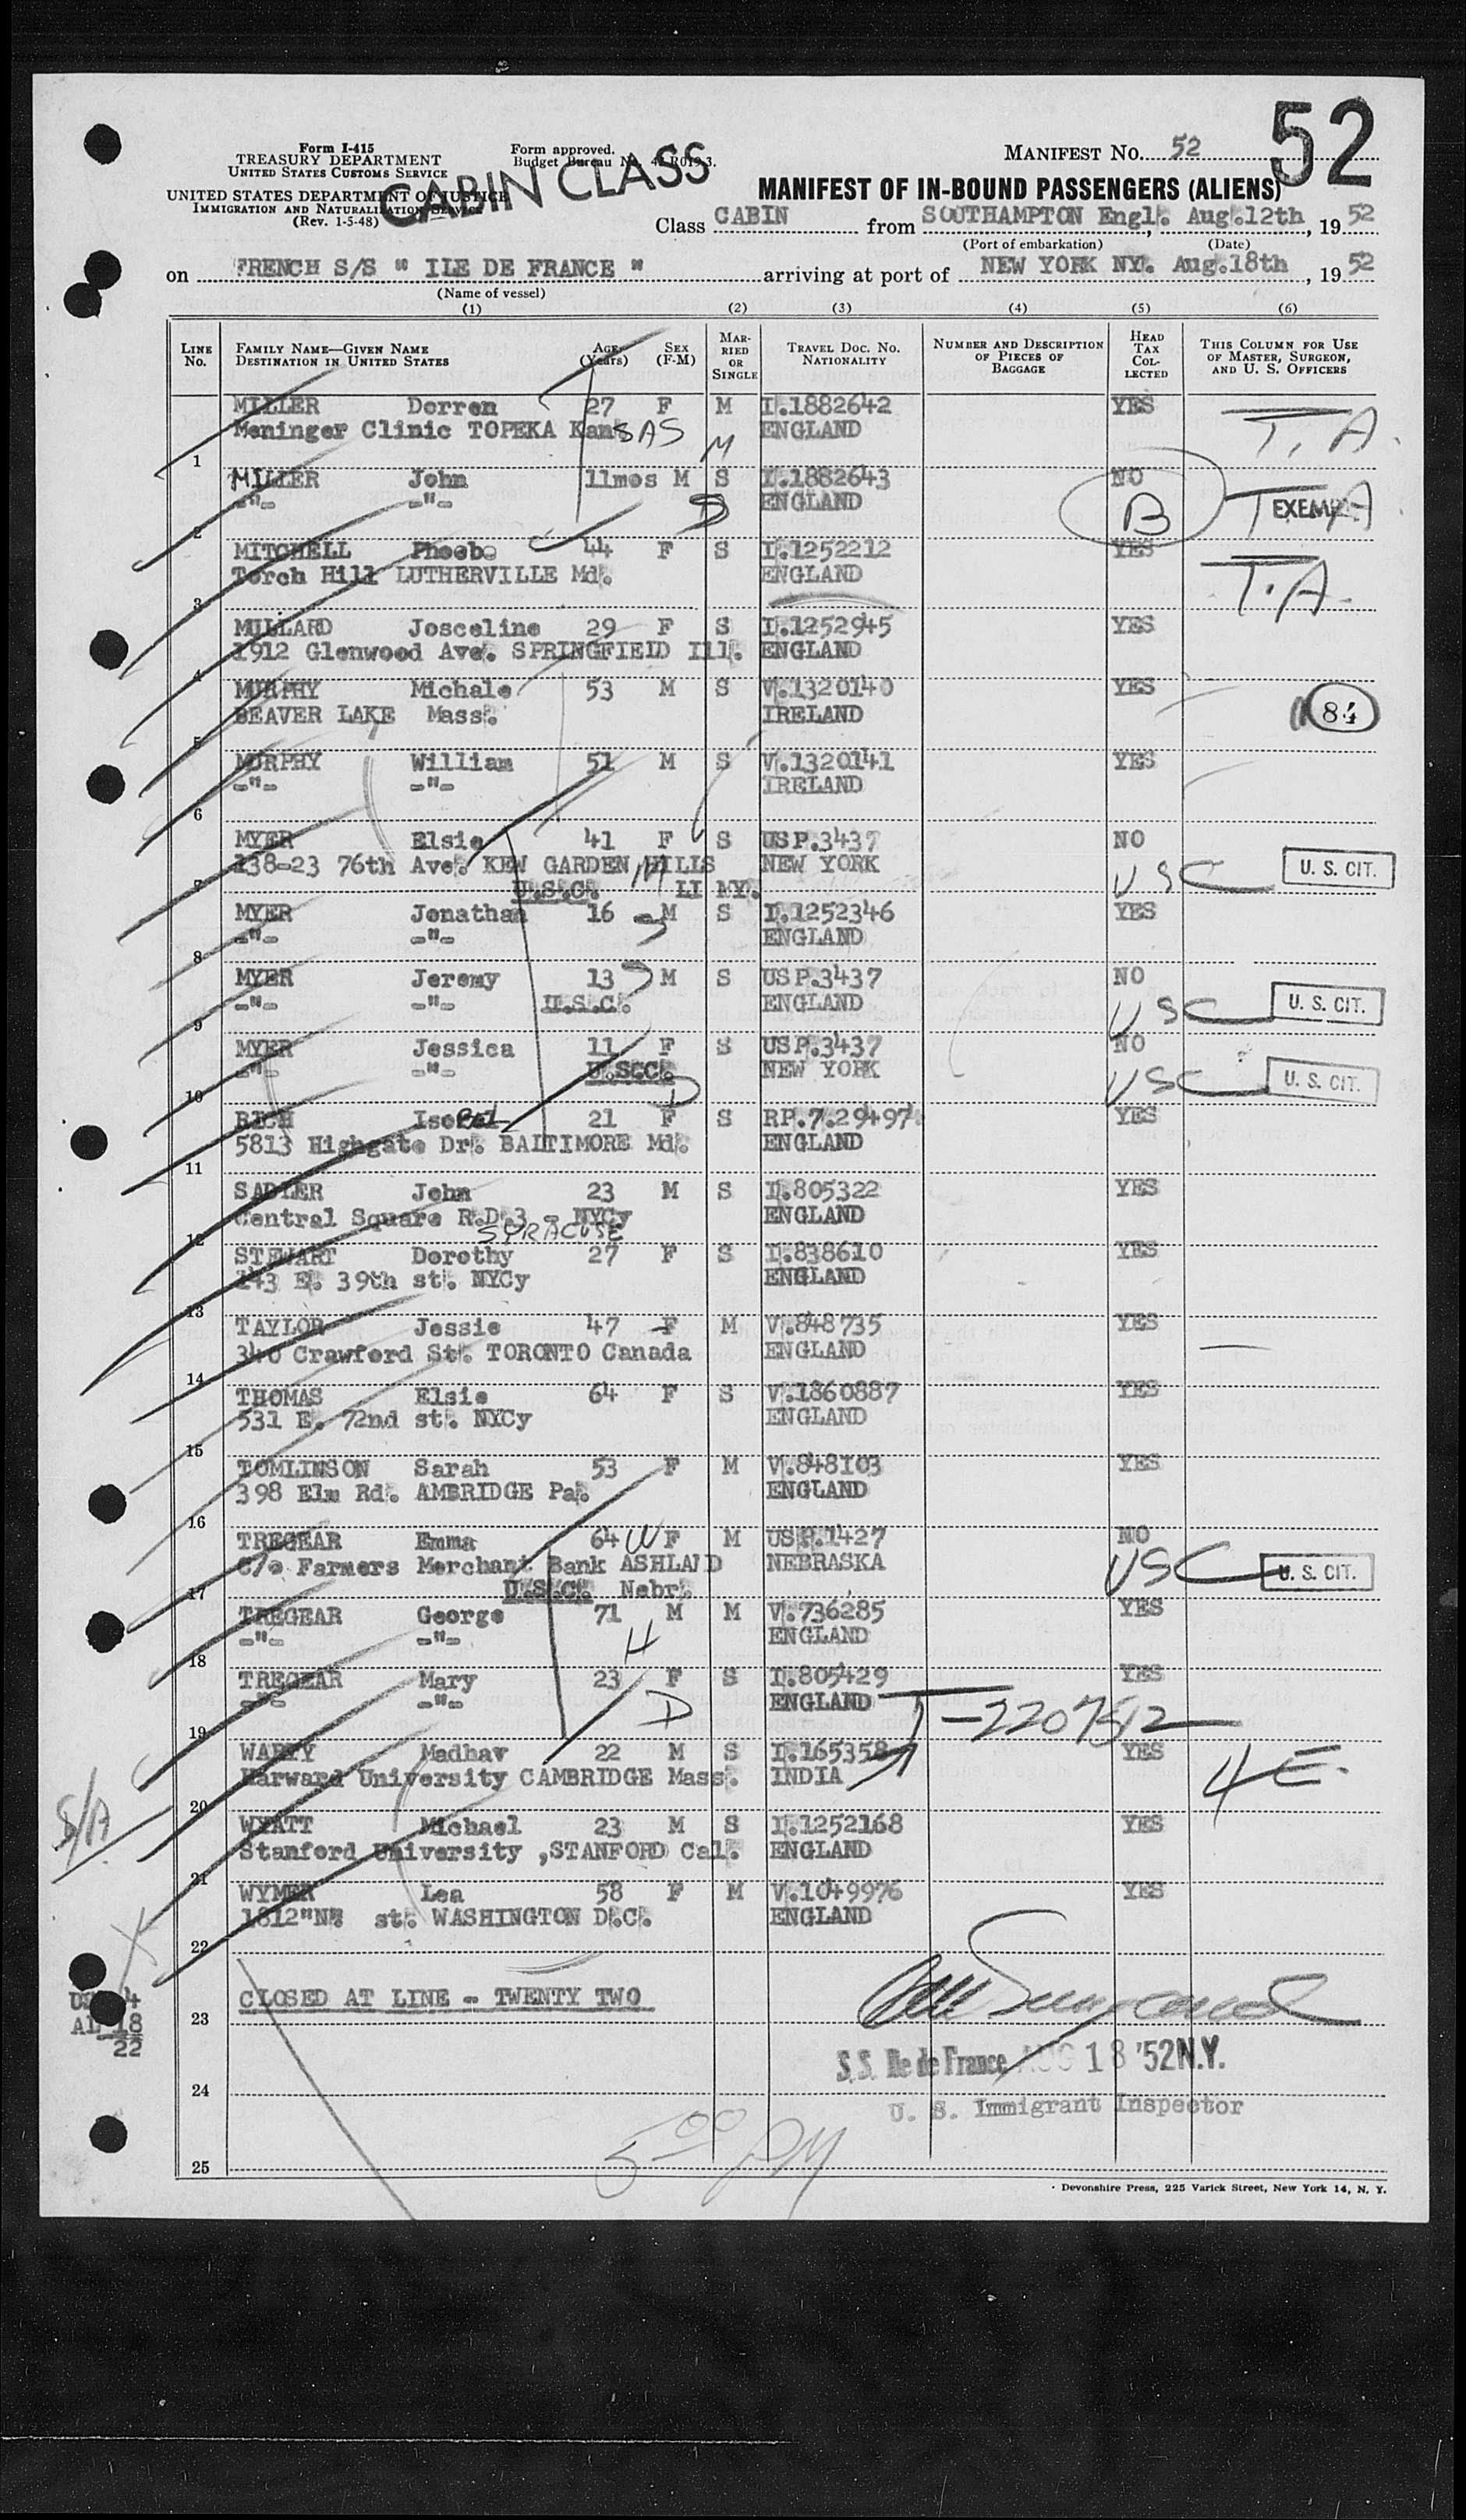 52
Form I-415
TREASURY DEPARTMENT
UNITED STATES CUSTOMS SERVICE
UNITED STATES DEPARTMENT OF JUSTICE
IMMIGRATION AND NATURALIZATION SERVICE
(Rev. 1-5-48)
Form approved.
Budget Bureau No.
CABIN CLASS
MANIFEST NO. 52
MANIFEST OF IN-BOUND PASSENGERS (ALIENS)
Class CABIN from SOUTHAMPTON Engl. Aug.12th, 1952
(Port of embarkation) (Date)
on FRENCH S/S " ILE DE FRANCE " arriving at port of NEW YORK NY. Aug.18th, 1952
(Name of vessel)
(1) (2) (3) (4) (5) (6)
LINE NO. FAMILY NAME—GIVEN NAME DESTINATION IN UNITED STATES AGE (Years) SEX (F-M) MARRIED OR SINGLE TRAVEL DOC. NO. NATIONALITY NUMBER AND DESCRIPTION OF PIECES OF BAGGAGE HEAD TAX COLLECTED THIS COLUMN FOR USE OF MASTER, SURGEON, AND U. S. OFFICERS
MILLER Dorren 27 F M I.1882642 YES T.A.
Meninger Clinic TOPEKA KansAS ENGLAND
1 M
MILLER John 11mos M S I.1882643 NO
-"- -"- S ENGLAND B T.A EXEMPT
2
MITCHELL Phoebe 44 F S I.1252212 YES
Torch Hill LUTHERVILLE Md. ENGLAND T.A.
3
MILLARD Josceline 29 F S I.1252945 YES
1912 Glenwood Ave. SPRINGFIELD Ill. ENGLAND
4
MURPHY Michale 53 M S V.1320140 YES
BEAVER LAKE Mass. IRELAND 84
5
MURPHY William 51 M S V.1320141 YES
-"- -"- IRELAND
6
MYER Elsie 41 F S USP.3437 NO
138-23 76th Ave. KEW GARDEN HILLS NEW YORK USC U. S. CIT.
7 U.S.C. M LI NY.
MYER Jonathan 16 M S I.1252346 YES
-"- -"- S ENGLAND
8
MYER Jeremy 13 S M S USP.3437 NO
-"- -"- U.S.C. ENGLAND USC U. S. CIT.
9
MYER Jessica 11 F S USP.3437 NO
-"- -"- U.S.C. NEW YORK USC U. S. CIT.
10 D
RICH Isobel 21 F S RP.7.29497 YES
5813 Highgate Dr. BALTIMORE Md. ENGLAND
11
SADLER John 23 M S I.805322 YES
Central Square R.D.3 - NYCy ENGLAND
12 SYRACUSE
STEWART Dorothy 27 F S I.838610 YES
143 E. 39th st. NYCy ENGLAND
13
TAYLOR Jessie 47 F M V.848735 YES
340 Crawford St. TORONTO Canada ENGLAND
14
THOMAS Elsie 64 F S V.1860887 YES
531 E. 72nd st. NYCy ENGLAND
15
TOMLINSON Sarah 53 F M V.848103 YES
398 Elm Rd. AMBRIDGE Pa. ENGLAND
16
TREGEAR Emma 64 W F M USP.1427 NO
C/o Farmers Merchant Bank ASHLAND NEBRASKA USC U. S. CIT.
17 U.S.C. Nebr.
TREGEAR George 71 M M V.736285 YES
-"- -"- H ENGLAND
18
TREGEAR Mary 23 F S I.805429 YES
-"- -"- D ENGLAND T-2207512
19
WARTY Madhav 22 M S I.165358 YES
Harward University CAMBRIDGE Mass. INDIA 4E.
20
S/A
WYATT Michael 23 M S I.1252168 YES
Stanford University ,STANFORD Cal. ENGLAND
21
WYMER Lea 58 F M V.1049976 YES
1812"N" st. WASHINGTON D.C. ENGLAND
22
X
CLOSED AT LINE - TWENTY TWO
23
4
AL 18
22
S.S. Ile de France AUG 18 '52 N.Y.
24
U. S. Immigrant Inspector
5 00 PM
25
Devonshire Press, 225 Varick Street, New York 14, N. Y.